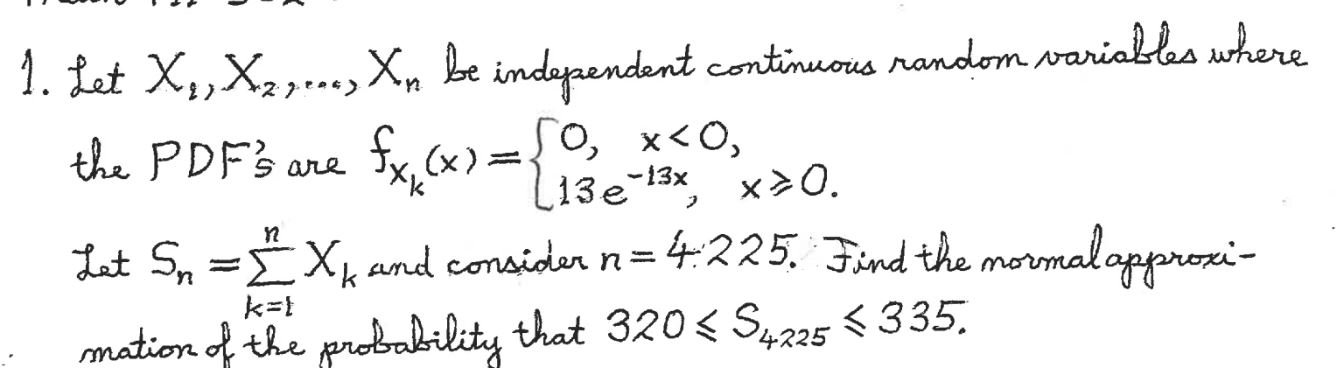 1. Let X₁, X₂, ..., Xₙ be independent continuous random variables where
the PDF's are f_{X_k}(x) = { 0, x < 0,
13e^{-13x}, x ⩾ 0.
Let Sₙ = ∑_{k=1}^{n} X_k and consider n = 4225. Find the normal approxi-
mation of the probability that 320 ⩽ S₄₂₂₅ ⩽ 335.